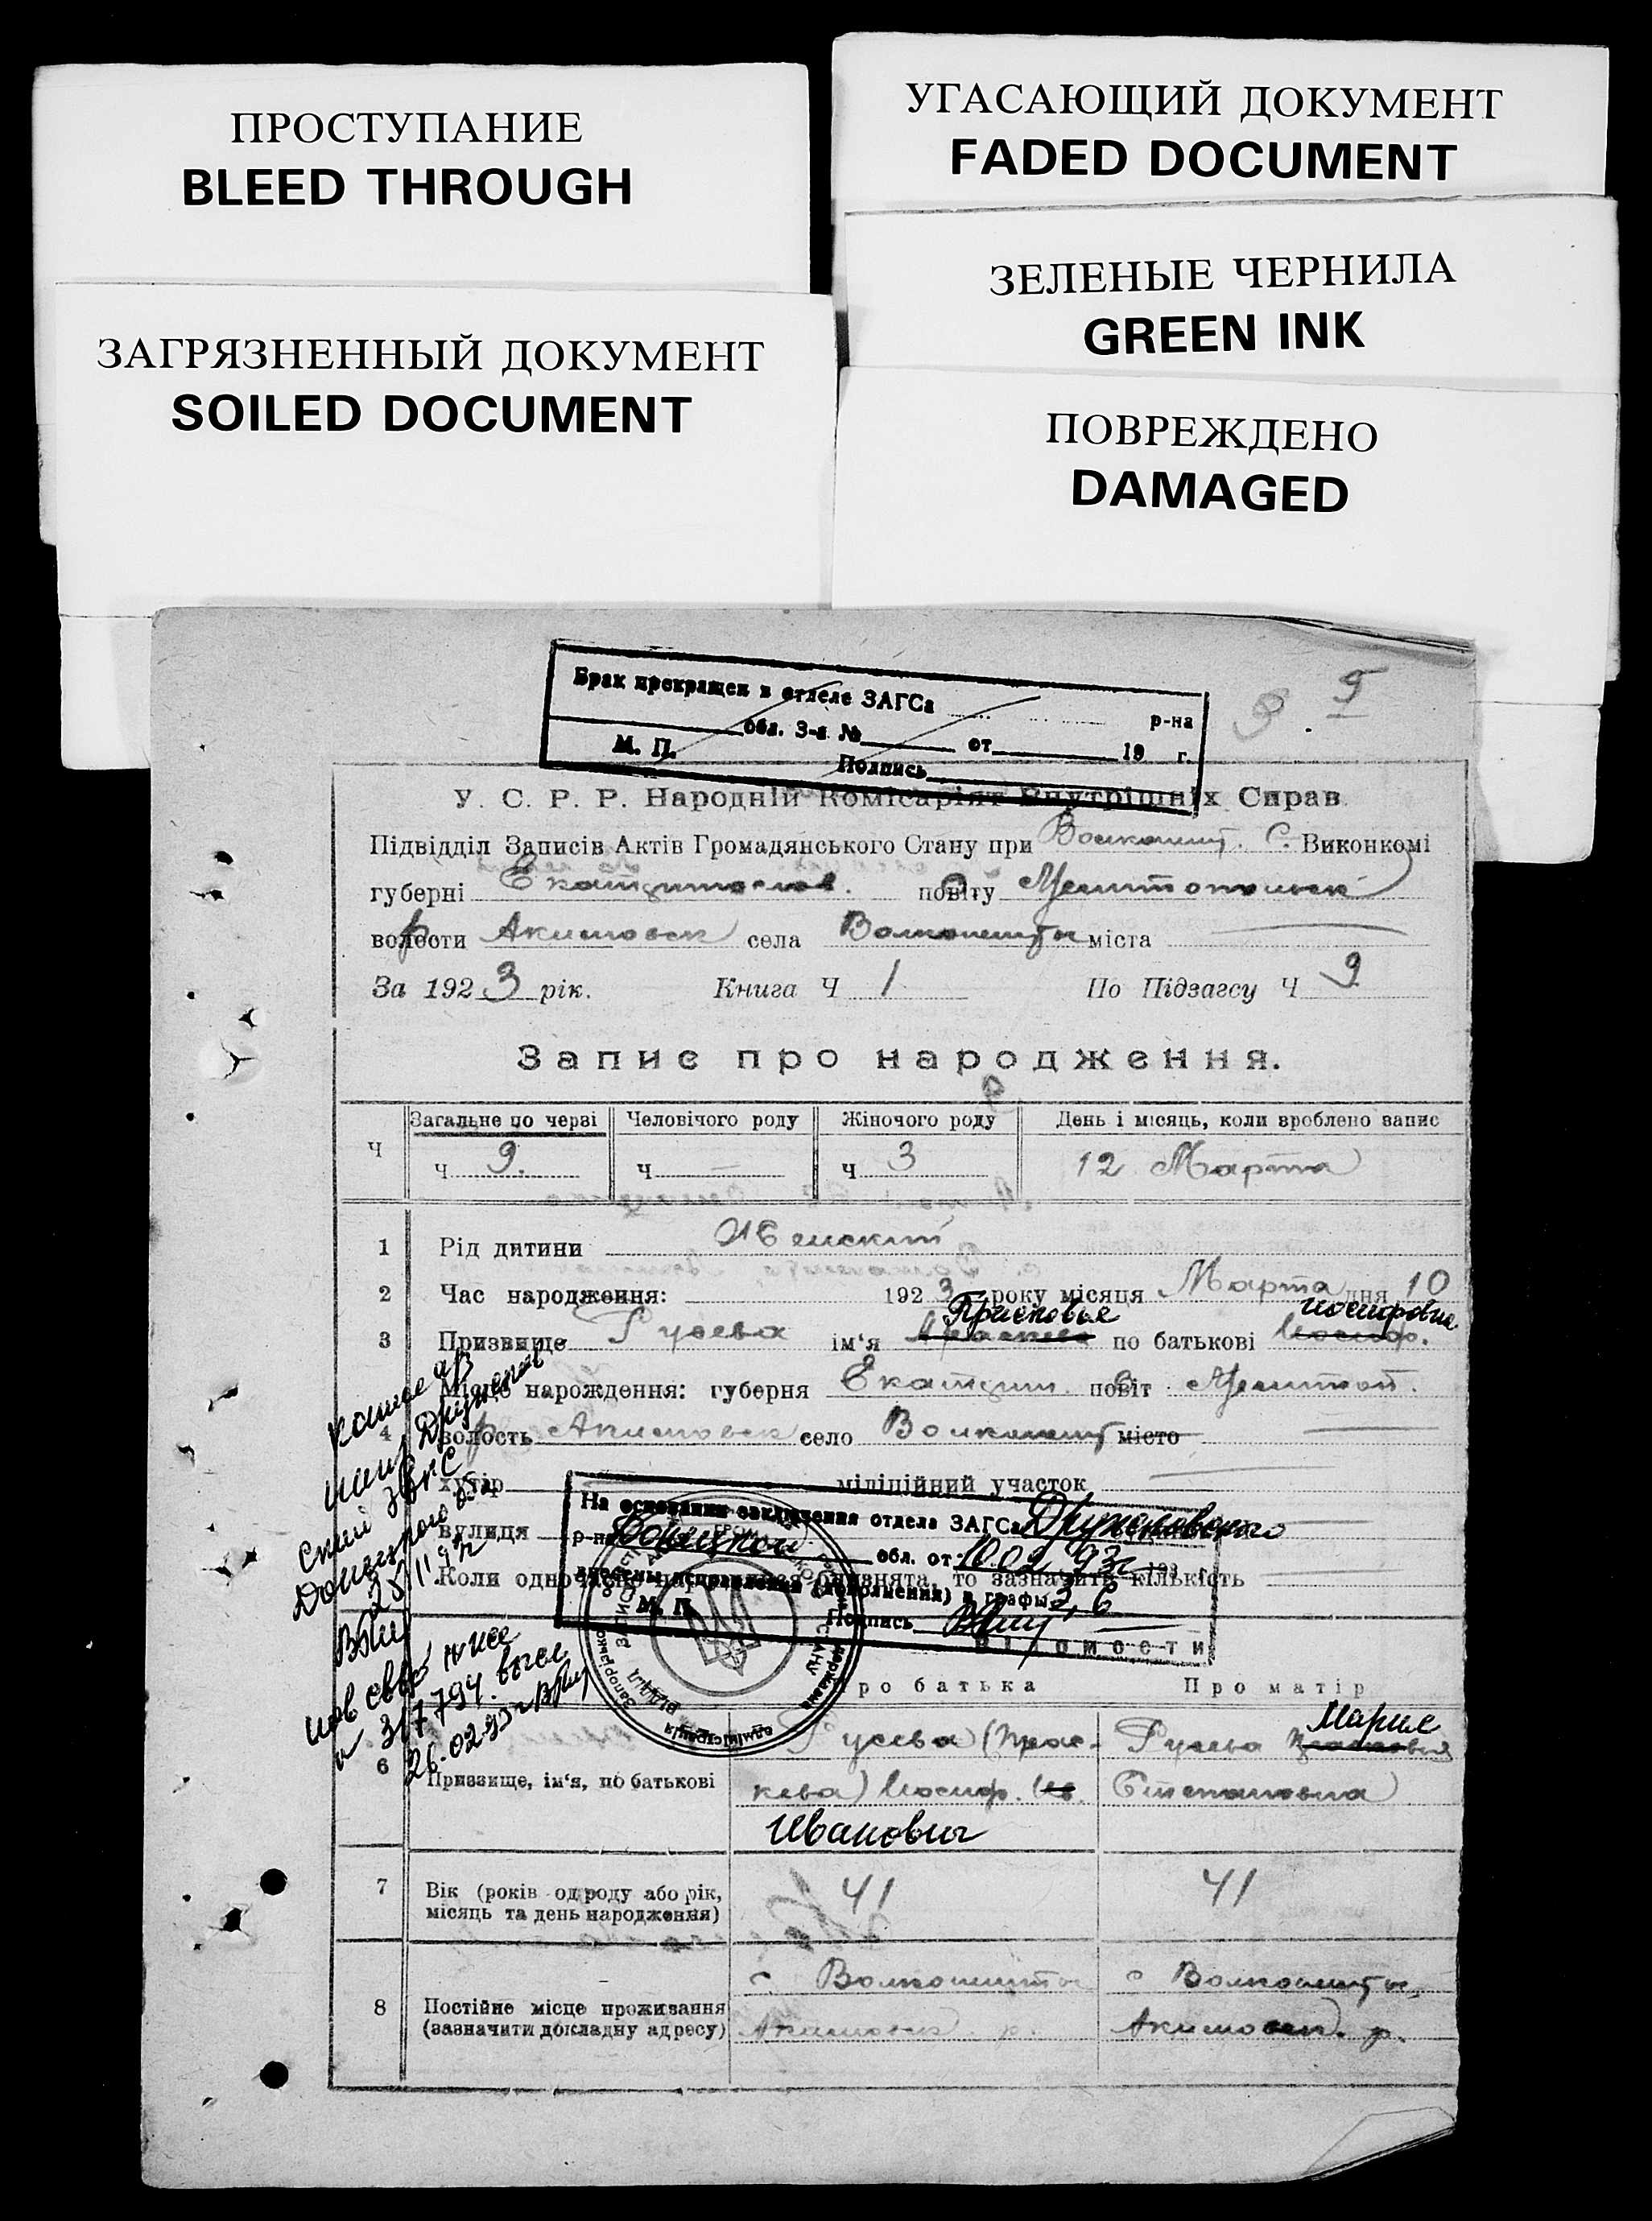 ПРОСТУПАНИЕ
BLEED THROUGH
ЗАГРЯЗНЕННЫЙ ДОКУМЕНТ
SOILED DOCUMENT
УГАСАЮЩИЙ ДОКУМЕНТ
FADED DOCUMENT
ЗЕЛЕНЫЕ ЧЕРНИЛА
GREEN INK
ПОВРЕЖДЕНО
DAMAGED
Брак прекращен в отделе ЗАГСа р-на
обл. З-я № от 19 г.
М. П. Подпись
9
У. С. Р. Р. Народній Комісаріят Внутрішніх Справ
Підвідділ Записів Актів Громадянського Стану при С. Виконкомі
губерні Екатеринослав. повіту Мелитопольск
волости Акимовск села Волконешты міста
За 1923 рік. Книга Ч 1 По Підзагсу Ч 9
Запис про народження.
Ч Загальне по черзі Человічого роду Жіночого роду День і місяць, коли зроблено запис
Ч 9. Ч — Ч 3 12 Марта
1 Рід дитини Женский
2 Час народження: 1923 року місяця Марта дня 10
Прасковья Иосифовна
3 Призвище Гусева ім‘я по батькові Иосиф.
4 Місце народження: губерня Екатерин. повіт Мелитоп.
волость Акимовск село Волконешт місто
хутір міліційний участок
вулиця
На основании заключения отдела ЗАГСа Дружковского
р-на Донецкой обл. от 10.02.93г 199 г.
внесены исправления (дополнения) в графы 3, 6
М. П. Подпись
Коли одно то зазначить кількість
Відомости
Про батька Про матір
Мария
6 Призвище, ім‘я, по батькові Гусева (Прас- Гусева
кева) Иосиф. Степановна
Иванович
7 Вік (років од роду або рік, місяць та день народження) 41 41
8 Постійне місце проживання (зазначити докладну адресу) с Волконешты с Волконешты,
Акимовск. р. Акимовск. р.
26.02.93г